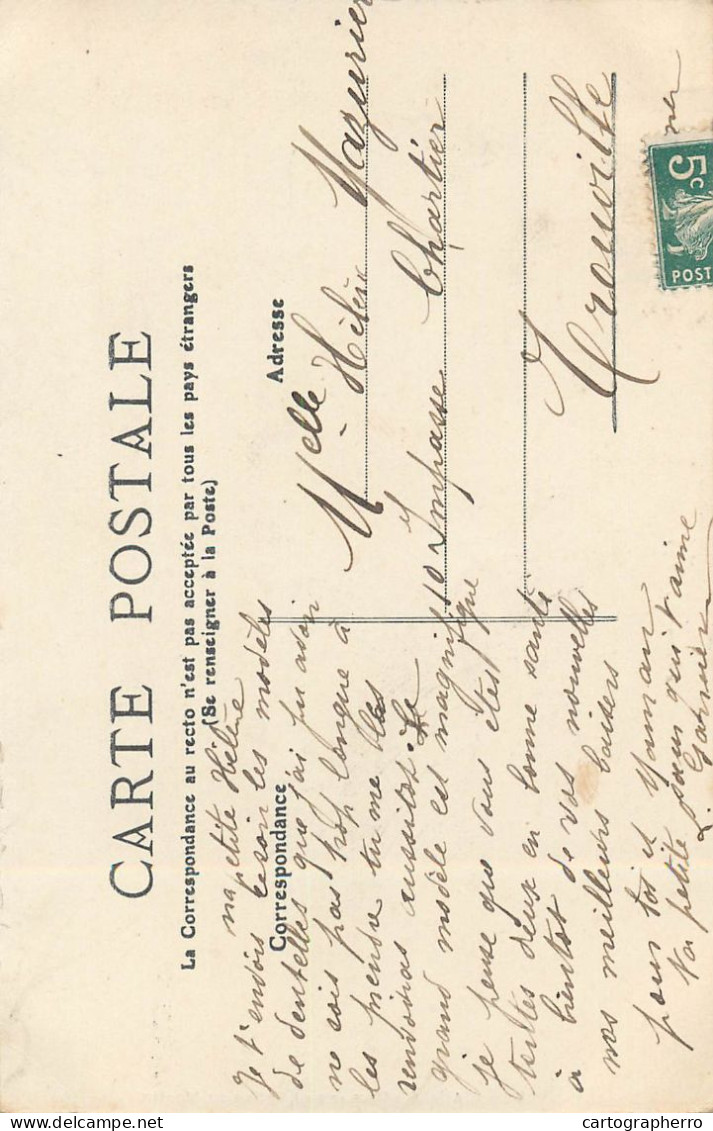 CARTE POSTALE
La Correspondance au recto n'est pas acceptée par tous les pays étrangers
(Se renseigner à la Poste)
Correspondance
Adresse
ma petite Hélène
Je t'envois les modèles
de dentelles que j'ai pu avoir
ne sois pas trop longue à
les prendre tu me les
renverras aussitot. Le
grand modèle est magnifique
je pense que vous êtes
toutes deux en bonne santé
à bientot de vos nouvelles
nos meilleurs baisers
pour toi et Maman
Ta petite sœur qui t'aime
Melle Hélène Mazurier
10 Impasse Chartier
Trouville
5c
POST
www.delcampe.net
cartographerro